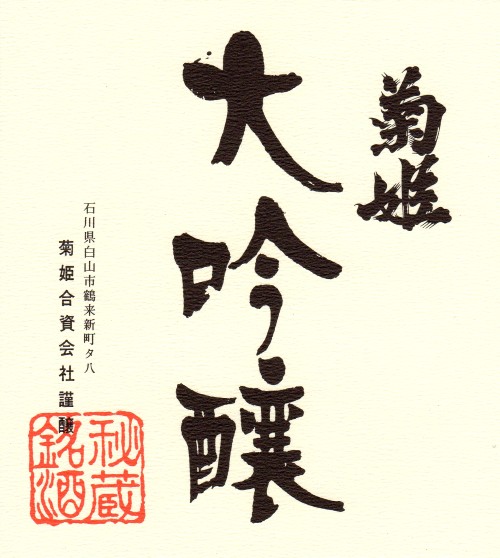 菊姫
大吟醸
石川県白山市鶴来新町タ八
菊姫合資会社謹醸
秘蔵
銘酒